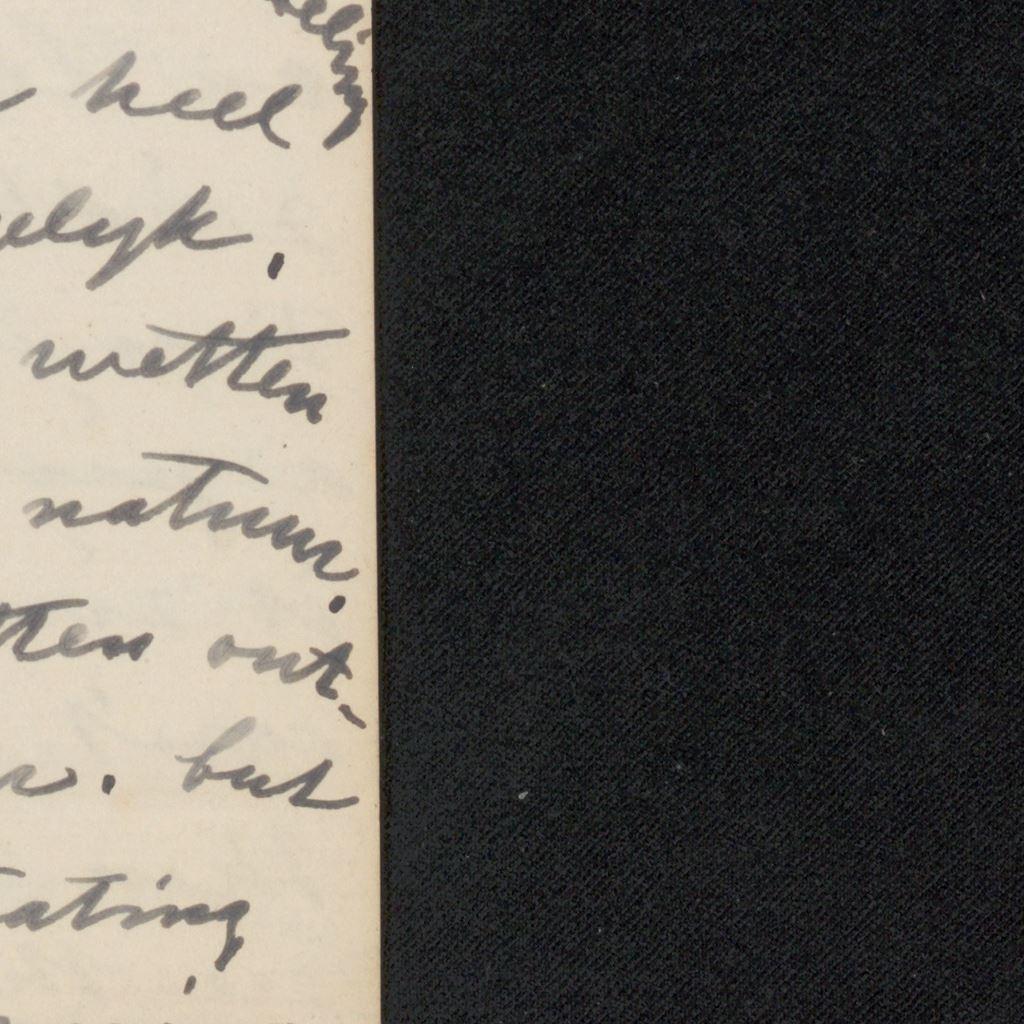 heel
elyk,
wetten
natuur.
tten ont-
. but
tating